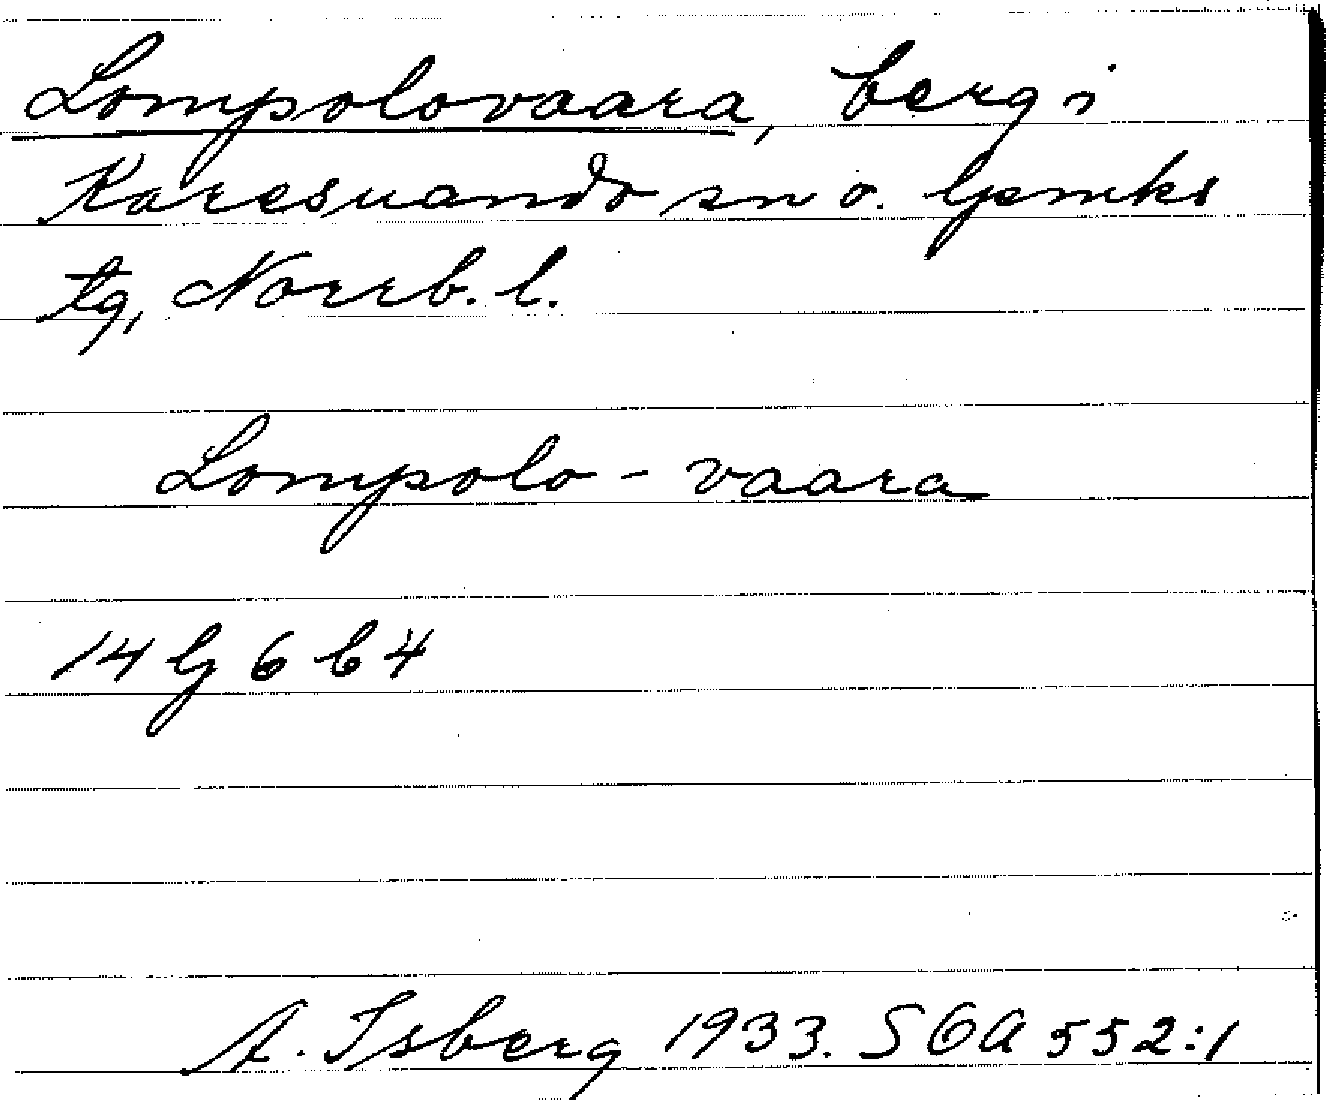 Lompolovaara, berg i
Karesuando sn o. lpmks
tg, Norrb. l.
Lompolo - vaara
14 G 6 b 4
A. Isberg 1933. SOA 552:1